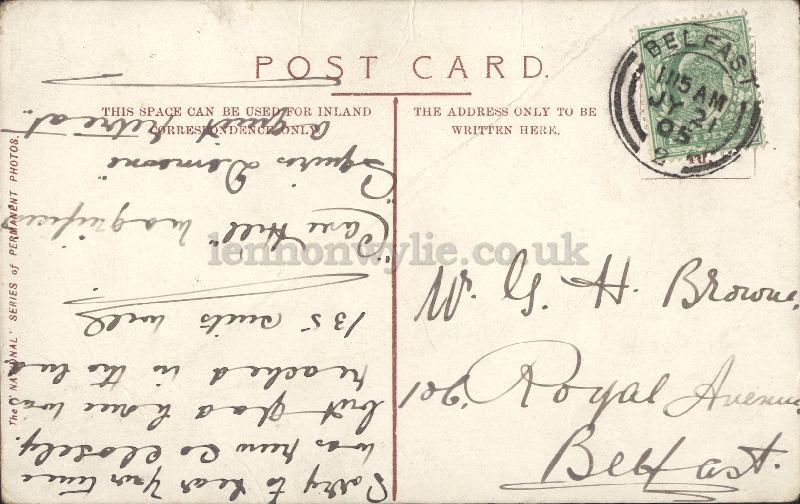 POST CARD.
THIS SPACE CAN BE USED FOR INLAND
CORRESPONDENCE ONLY.
THE ADDRESS ONLY TO BE
WRITTEN HERE.
BELFAST
1115 AM
JY 21
05
2
The "NATIONAL" SERIES of PERMANENT PHOTOS.
W. G. H. Browne,
106. Royal Avenue
Belfast.
Sorry to hear your time
was run so closely.
but glad home was
reached in the end
135 suits well
"Cave Hill" magnificent
"Squires Demesne"
a quiet retreat.
lennonwylie.co.uk